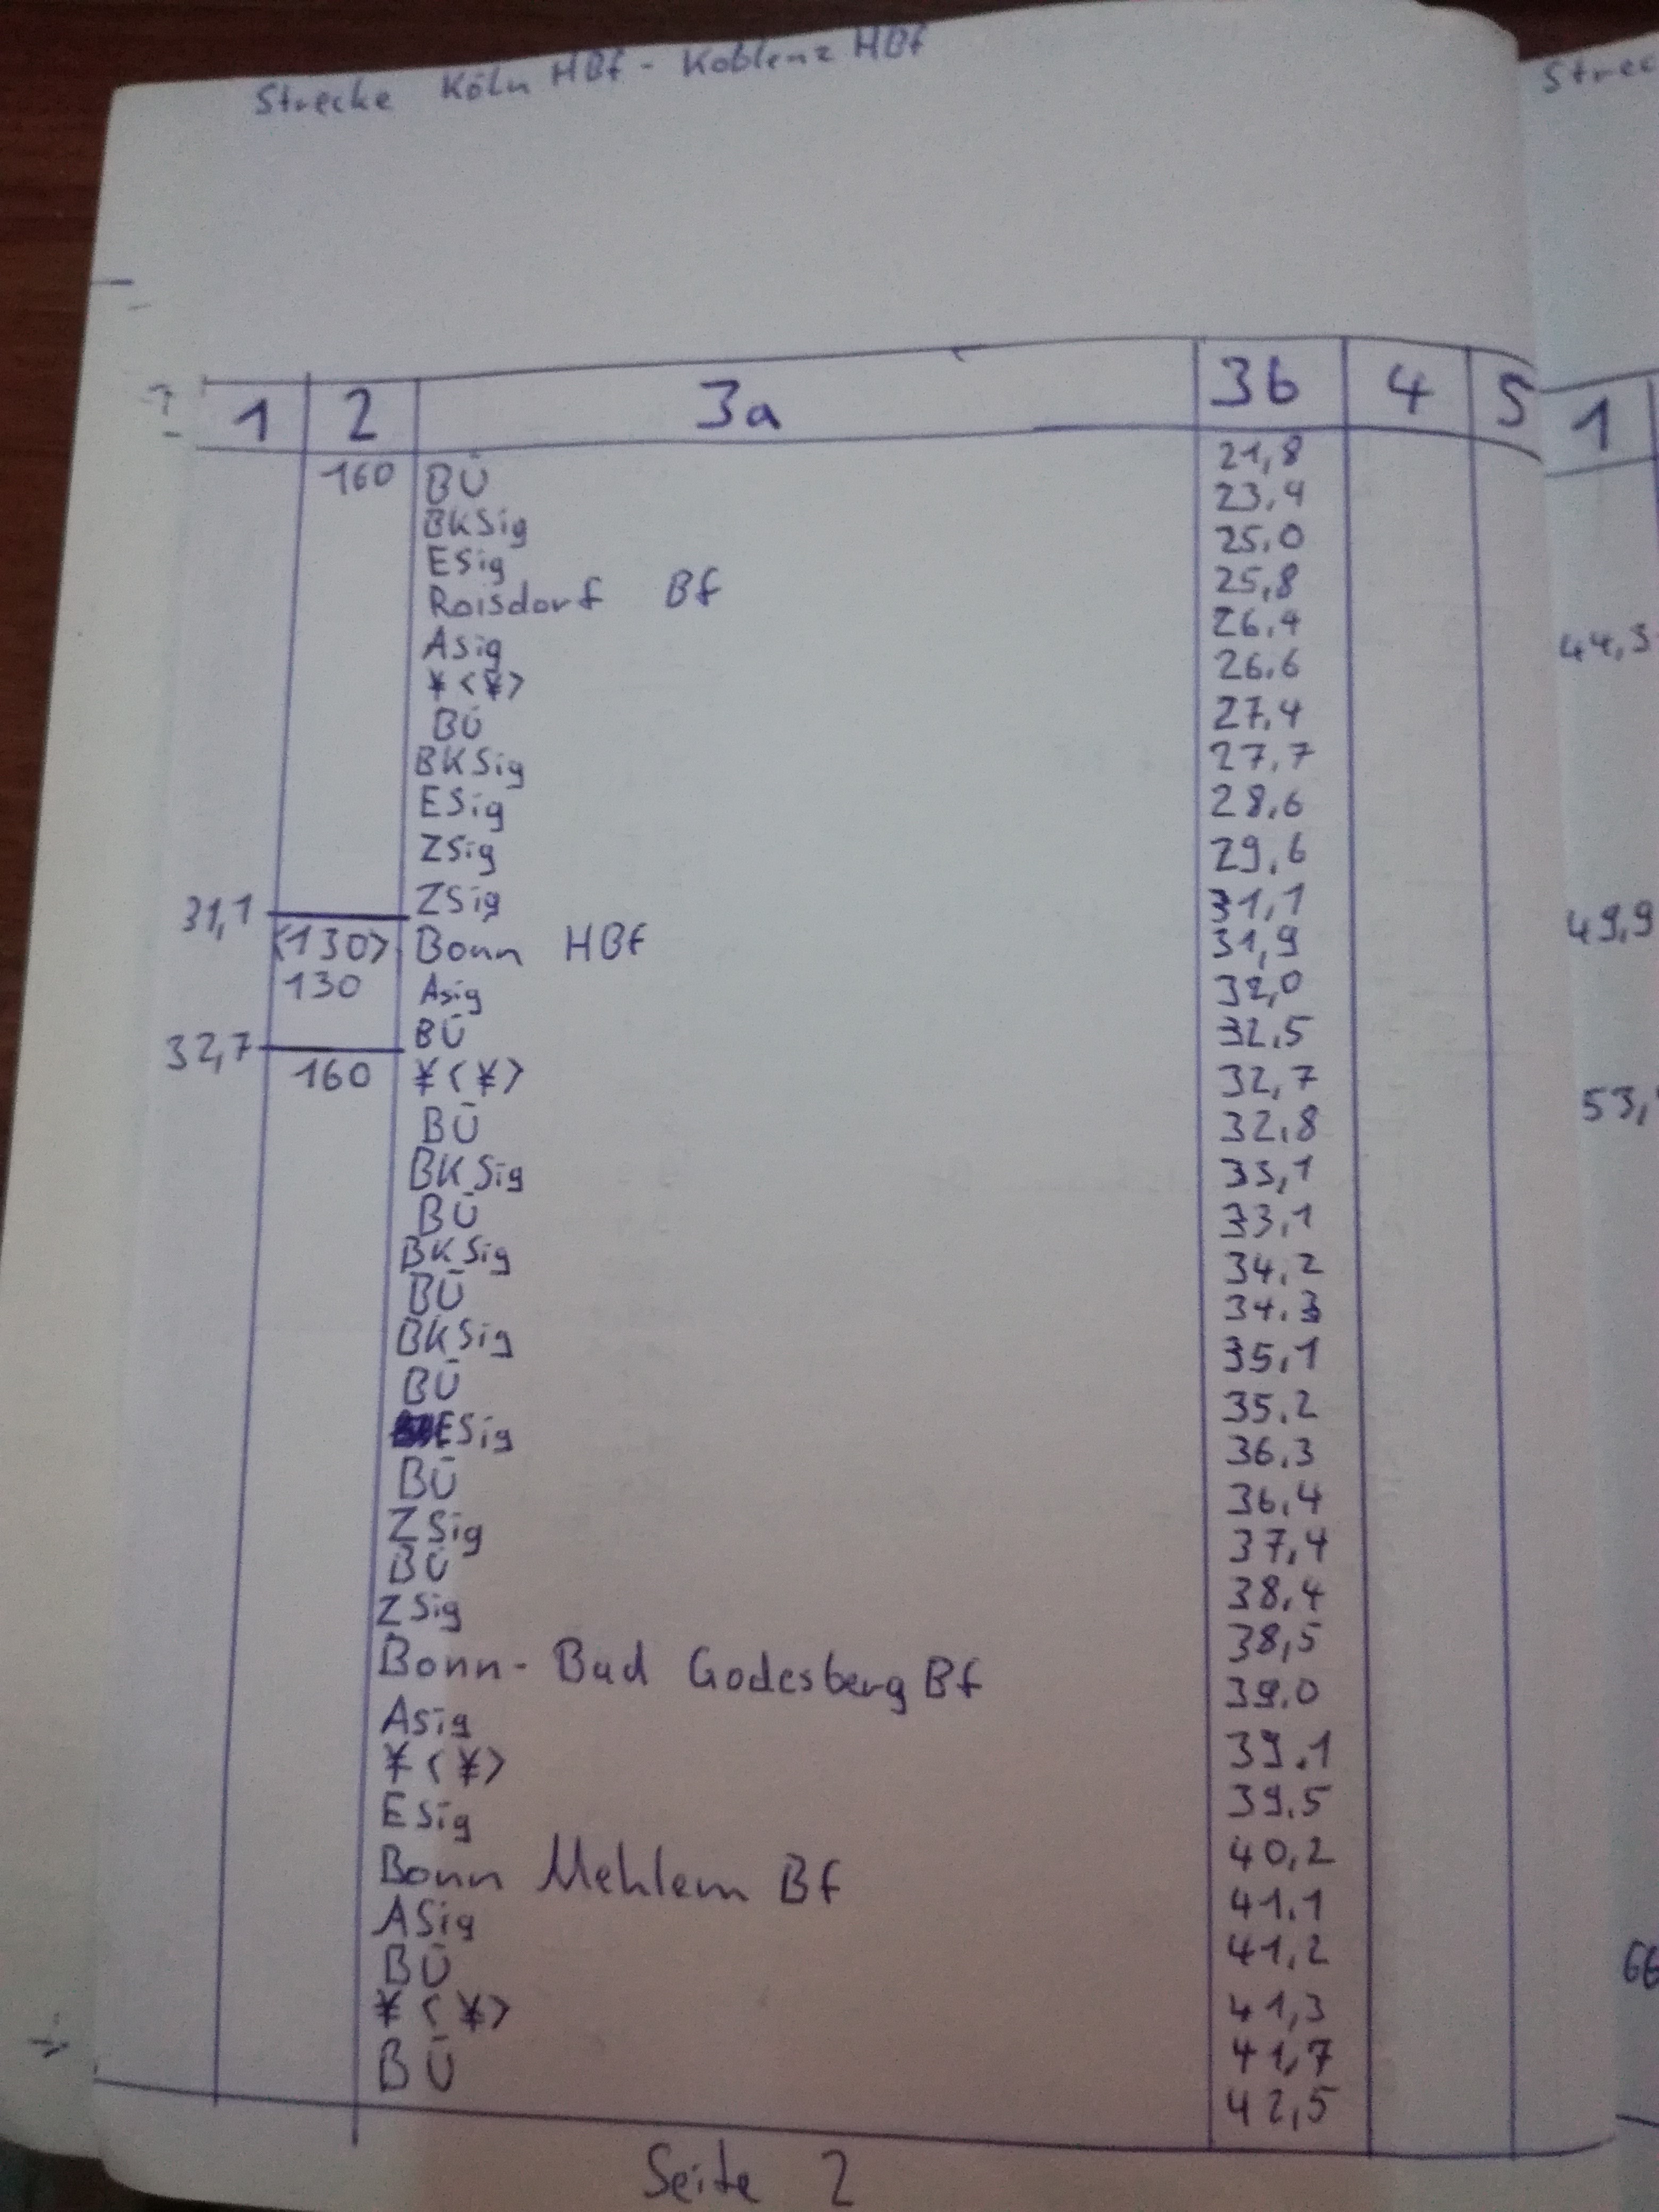 Strecke Köln HBf - Koblenz HBf
1 2 3a 3b 4 5
160 BÜ 21,8
BKSig 23,4
ESig 25,0
Roisdorf Bf 25,8
Asig 26,4
¥<¥> 26,6
BÜ 27,4
BKSig 27,7
ESig 28,6
ZSig 29,6
31,1 ZSig 31,1
<130> Bonn HBf 31,9
130 Asig 32,0
32,7 BÜ 32,5
160 ¥<¥> 32,7
BÜ 32,8
BKSig 33,1
BÜ 33,1
BKSig 34,2
BÜ 34.3
BKSig 35,1
BÜ 35.2
ESig 36.3
BÜ 36.4
ZSig 37,4
BÜ 38,4
ZSig 38,5
Bonn-Bad Godesberg Bf 39.0
Asig 39.1
¥<¥> 39.5
ESig 40,2
Bonn Mehlem Bf 41.1
ASig 41,2
BÜ 41,3
¥<¥> 41,7
BÜ 42,5
Seite 2
1
44,3
49,9